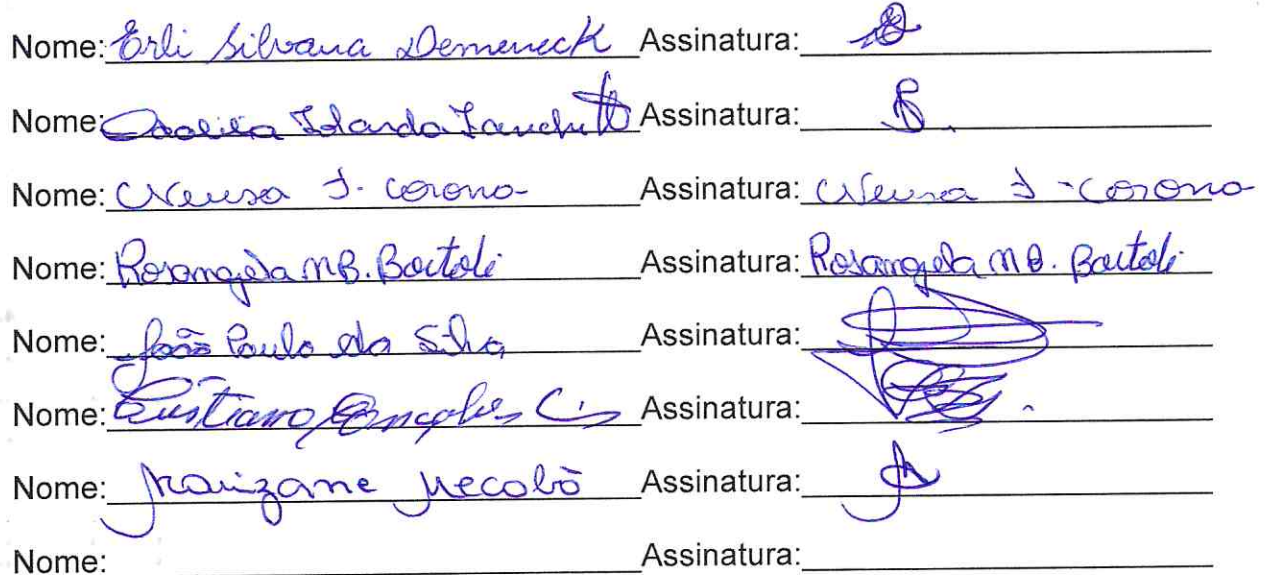 Nome: Erli Silvana Demeneck Assinatura:
Nome: Iolanda Assinatura:
Nome: Neusa J. Corono Assinatura: Neusa J - Corono
Nome: Rosangela MB. Bortoli Assinatura: Rosangela MB. Bortoli
Nome: João Paulo da Silva Assinatura:
Nome: Cristiano Gonçalves Assinatura:
Nome: Marizane Assinatura:
Nome: Assinatura: